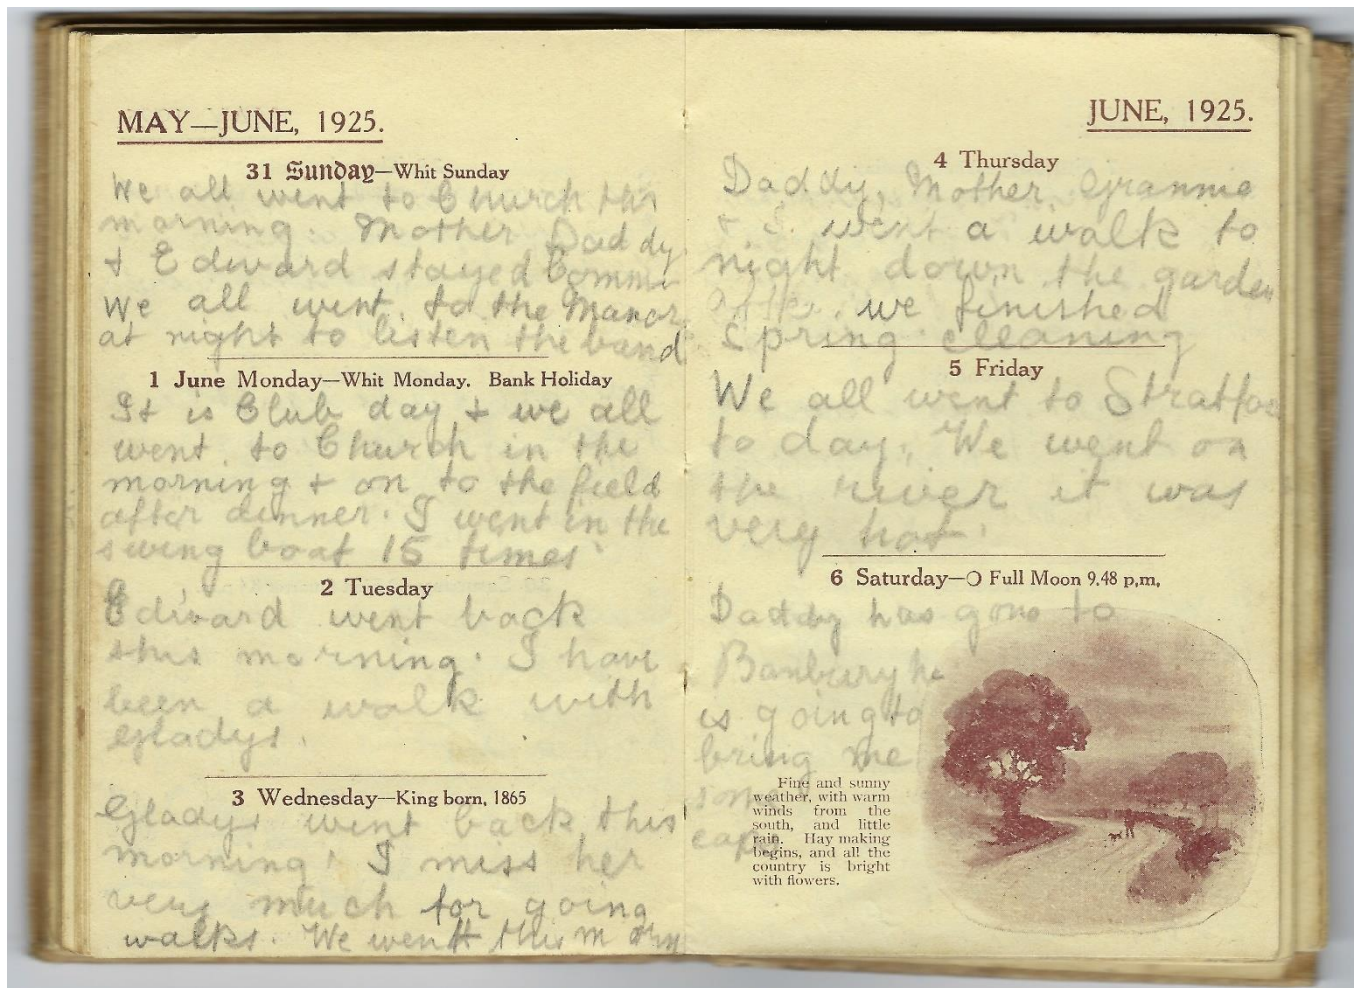 MAY—JUNE, 1925.
31 Sunday—Whit Sunday
We all went to Church this
morning. Mother Daddy
& Edward stayed Comm
We all went to the Manor
at night to listen the band
1 June Monday—Whit Monday. Bank Holiday
It is Club day & we all
went to Church in the
morning & on to the field
after dinner. I went in the
swing boat 15 times
2 Tuesday
Edward went back
this morning. I have
been a walk with
Gladys.
3 Wednesday—King born, 1865
Gladys went back this
morning. I miss her
very much for going
walks. We went this morn
JUNE, 1925.
4 Thursday
Daddy, Mother, Grannie
& I went a walk to
night down the garden
After we finished
spring cleaning
5 Friday
We all went to Stratfor
to day. We went on
the river it was
very hot.
6 Saturday—○ Full Moon 9.48 p.m.
Daddy has gone to
Banbury he
is going to
bring me
some
caps
Fine and sunny
weather, with warm
winds from the
south, and little
rain. Hay making
begins, and all the
country is bright
with flowers.